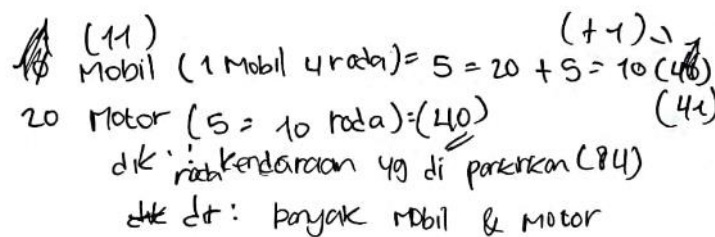 (11) (+1)
Mobil (1 Mobil 4 roda) = 5 = 20 + 5 = 10 (40)
20 Motor (5 = 10 roda) = (40) (41)
dik : roda kendaraan yg di parkirkan (84)
dit : banyak Mobil & Motor